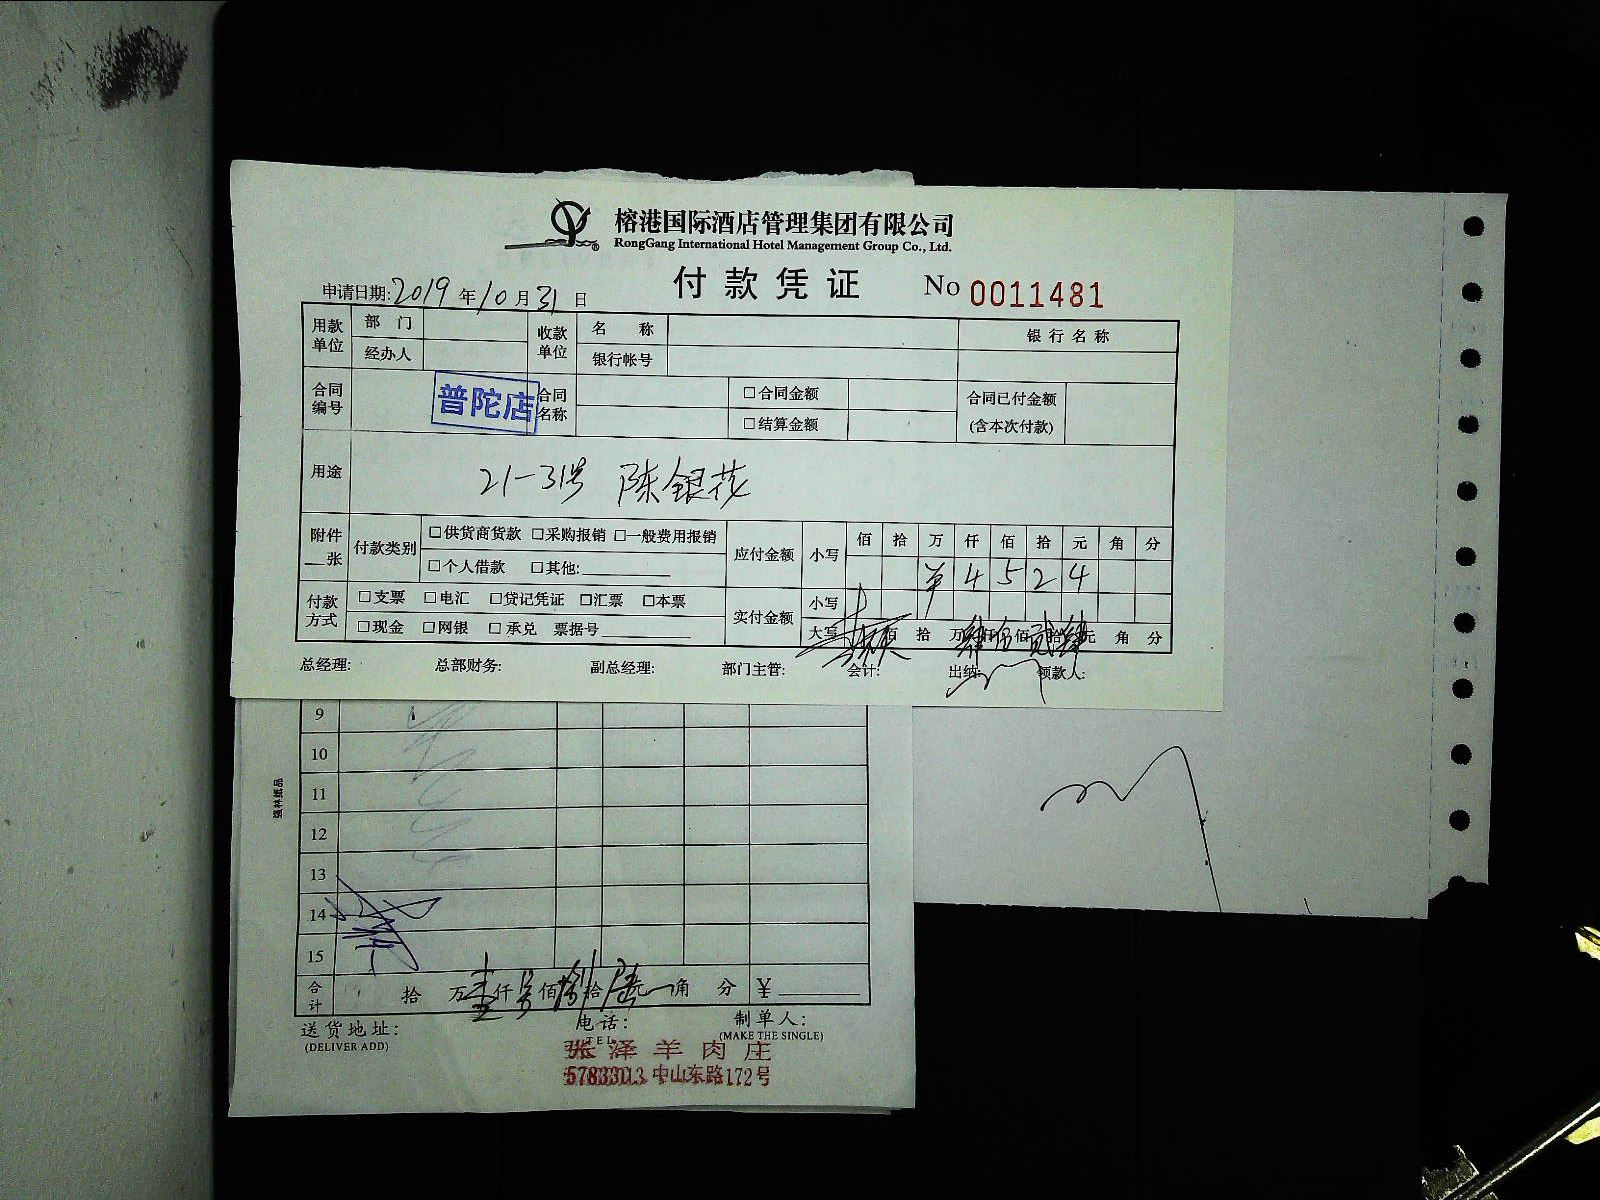 榕港国际酒店管理集团有限公司
RongGang International Hotel Management Group Co., Ltd.
付款凭证 No 0011481
申请日期: 2019 年 10 月 31 日
用款单位 部门 收款单位 名称 银行名称
经办人 银行帐号
合同编号 普陀店 合同名称 □合同金额 合同已付金额
□结算金额 (含本次付款)
用途 21-31号 陈银花
附件__张 付款类别 □供货商货款 □采购报销 □一般费用报销 应付金额 小写 佰 拾 万 仟 佰 拾 元 角 分
□个人借款 □其他: ¥ 4 5 2 4
付款方式 □支票 □电汇 □贷记凭证 □汇票 □本票 实付金额 小写
□现金 □网银 □承兑 票据号 大写 佰 拾 万 肆仟 伍佰 贰拾 肆元 角 分
总经理: 总部财务: 副总经理: 部门主管: 会计: 出纳: 领款人:
9
10
11
12
13
14
15
强林纸品
合计 拾 万 仟 佰 拾 元 角 分 ¥
送货地址: 电话: 制单人:
(DELIVER ADD) TEL (MAKE THE SINGLE)
张泽羊肉庄
57833013 中山东路172号